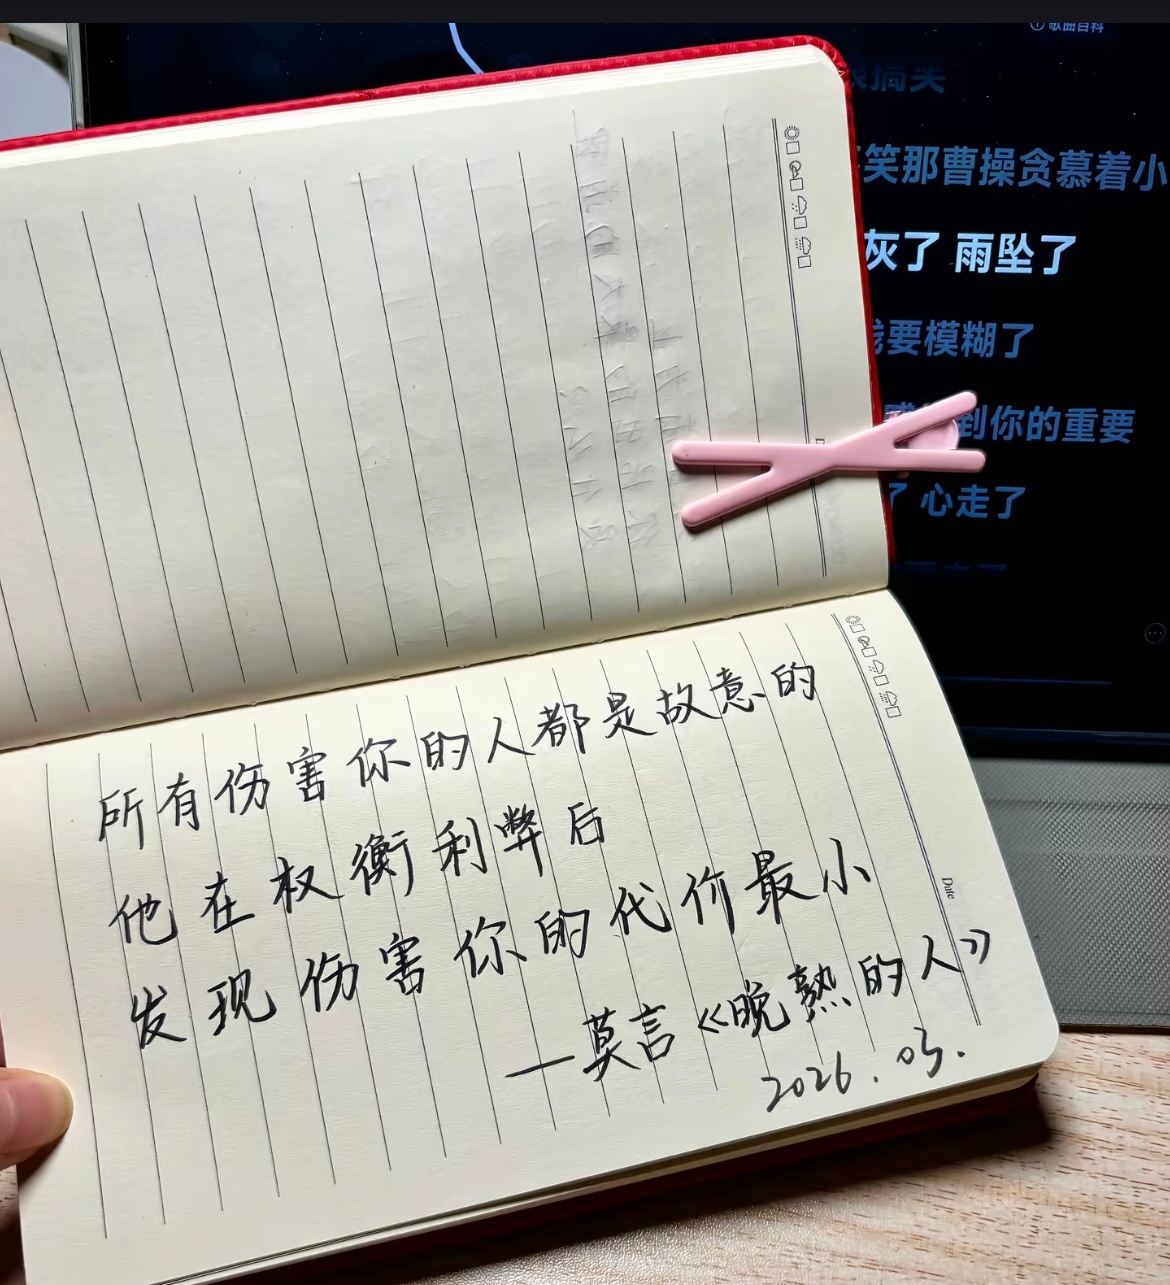 歌曲百科
搞笑
笑那曹操贪慕着小
灰了 雨坠了
要模糊了
到你的重要
了 心走了
Date
所有伤害你的人都是故意的
他在权衡利弊后
发现伤害你的代价最小
—莫言《晚熟的人》
2026.03.